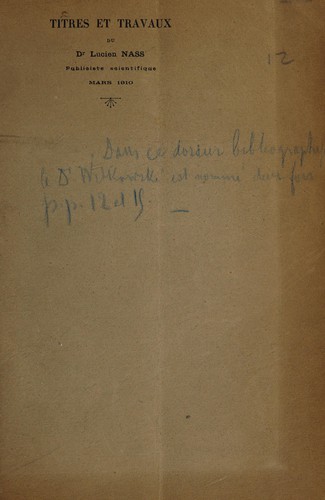 TITRES ET TRAVAUX
DU
Dr Lucien NASS
Publiciste scientifique
MARS 1910
12
Dans ce dossier bibliographe
le Dr Witkowski est nommé deux fois
p.p. 12 et 15. —